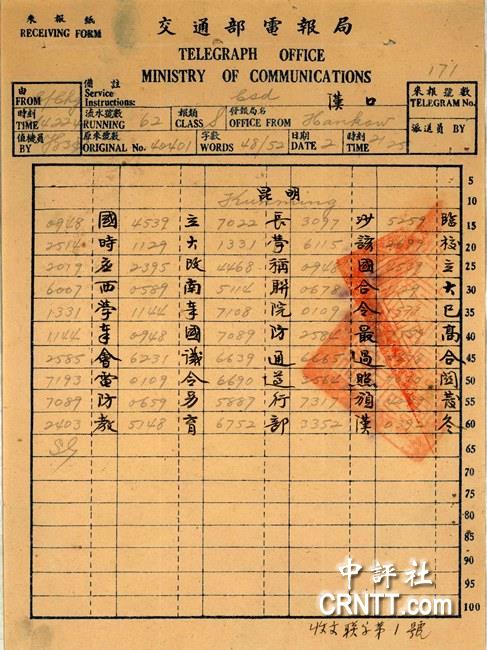 來報紙
RECEIVING FORM
交通部電報局
TELEGRAPH OFFICE
MINISTRY OF COMMUNICATIONS
171
由
FROM
備註
Service Instructions:
Csd
漢口
來報號數
TELEGRAM No.
時刻
TIME
流水號數
RUNNING 62
報類
CLASS S
發報局名
OFFICE FROM Hankow
派送員 BY
值機員
BY
原來號數
ORIGINAL No. 40401
字數
WORDS 48/52
日期
DATE 2
時刻
TIME 2125
昆明
Kunming
0948 國 4539 立 7022 長 3097 沙 5259 臨
2514 時 1129 大 1331 學 6115 該 校
2019 應 2395 改 4468 稱 0948 國 立
6007 西 0589 南 5114 聯 0678 合 大
1331 學 1144 奉 7108 院 0109 令 已
1144 奉 0948 國 7089 防 2584 最 高
2585 會 6231 議 6639 通 6665 過 合
7193 電 0109 令 6690 遵 2564 照
7089 防 0659 易 5887 行 7317 頒
2403 教 5148 育 6752 部 3352 漢 冬
5
10
15
20
25
30
35
40
45
50
55
60
65
70
75
80
85
90
95
100
中評社
CRNTT.com
收文聯字第1號